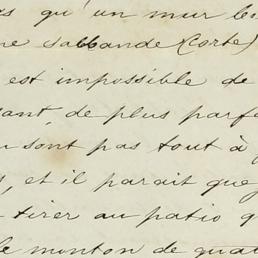 qu'un mur
sabbande (Corte)
est impossible de
de plus parf
sont pas tout à
, et il parait que
tirer au patio q
le monton de quat